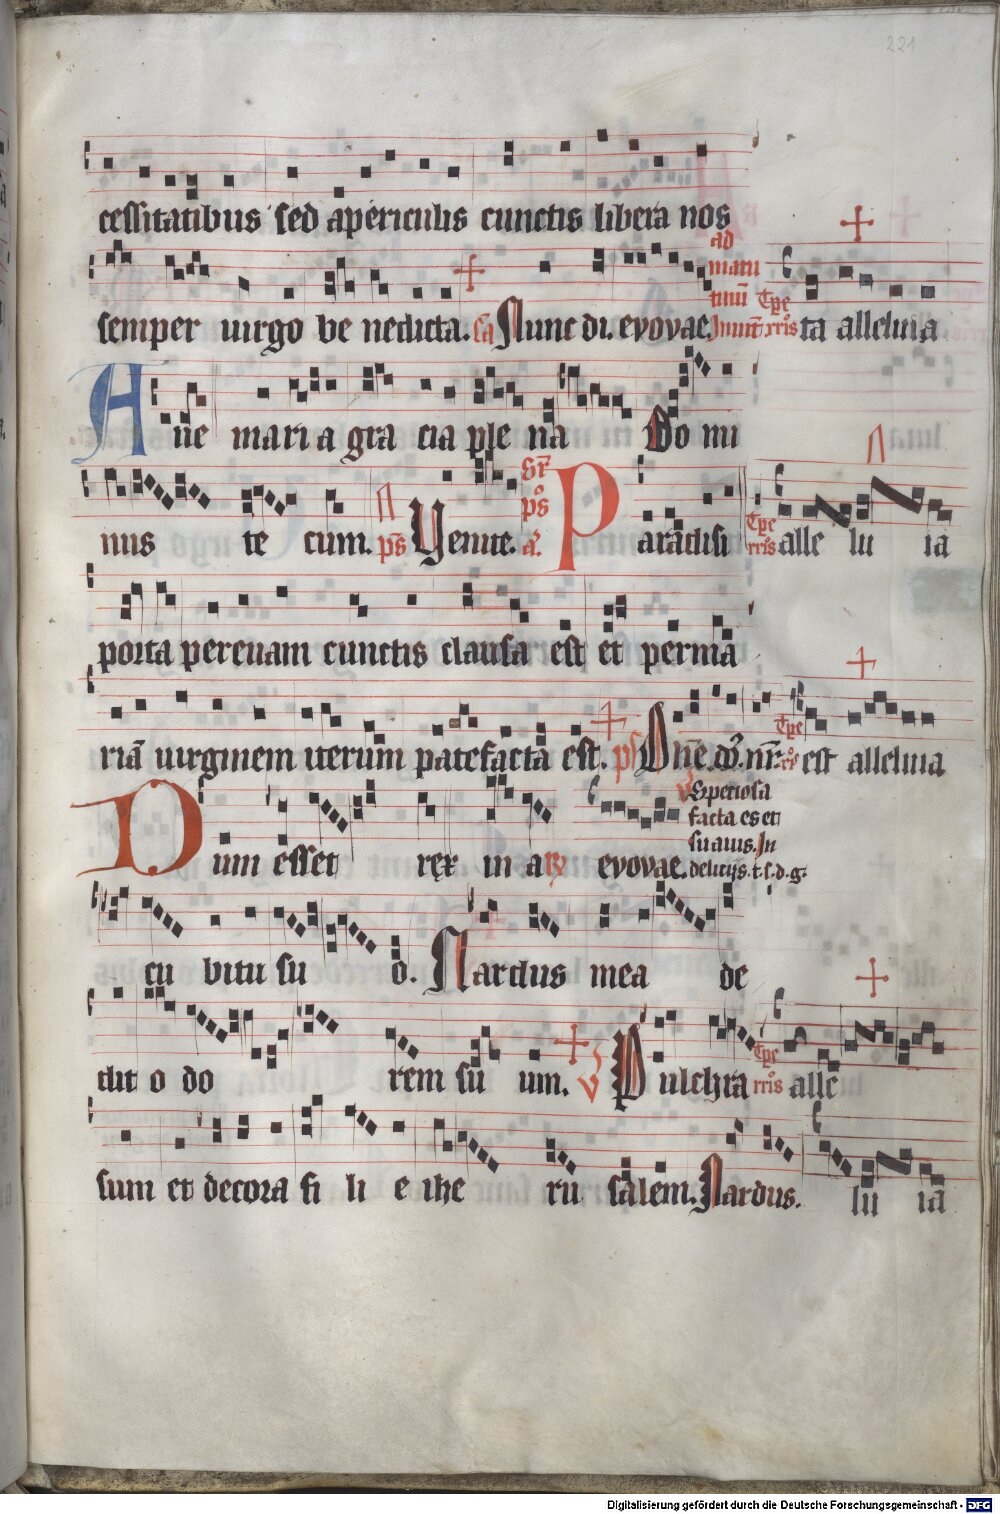 221
cessitatibus sed apericulis cunctis libera nos
semper uirgo be nedicta. ca Nunc di. evovae. ad matu tinū Inuit Tpe rris ta alleluia
Aue maria gra cia ple na Do mi
nus te cum. ps Uenite. Paradisi Tpe rris alle lu ia
porta per euam cunctis clausa est et per ma
riā uirginem iterum patefacta est. ps Dn̄e. dn̄s. nr̄. Tpe est alleluia
Dum esset rex in a evovae. v Speciosa
facta es et
suauis. In
delicijs. t. s. d. g.
cu bitu su o. Nardus mea de
dit o do rem su um. V Pulchra Tpe rris alle
sum et decora fi li e ihe ru salem. Nardus. lu ia
Digitalisierung gefördert durch die Deutsche Forschungsgemeinschaft - DFG